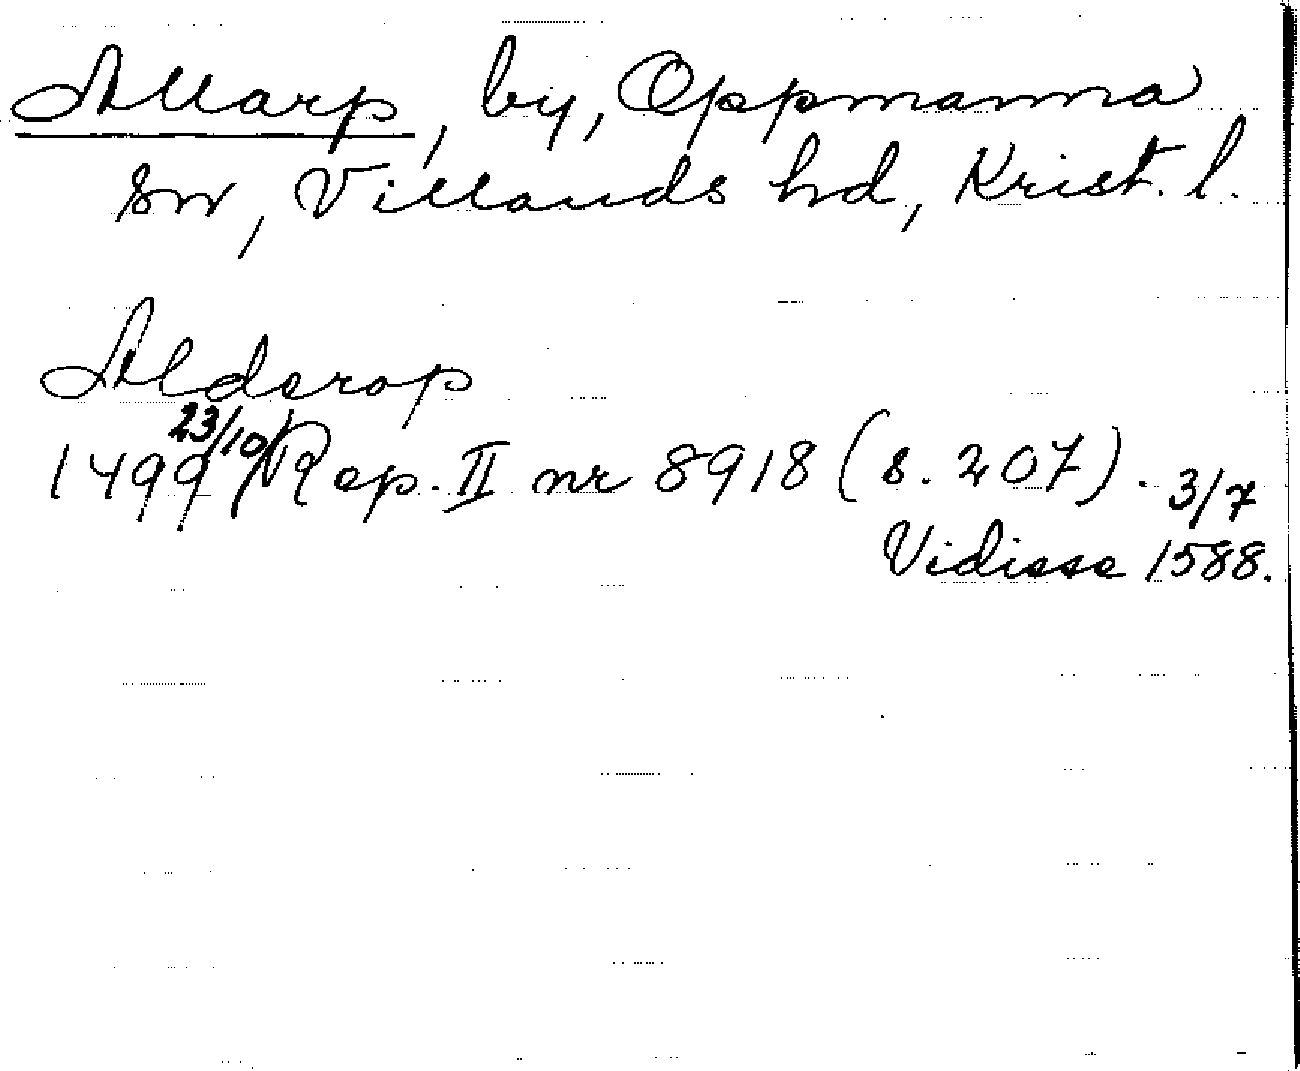 Allarp, by, Oppmanna
sn, Villands hd, Krist. l.
Alderop
1499 23/10 Rep. II nr 8918 (s. 207). 3/7
Vidisse 1588.